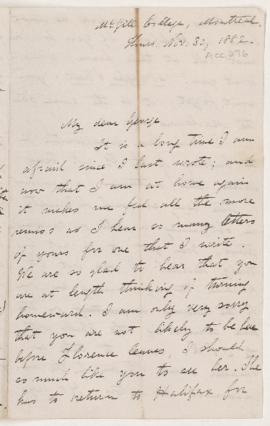 McGill College, Montreal.
Thurs. Nov. 1882.
ACC 276
My dear George
It is a long time I am
afraid since I last wrote; and
now that I am at home again
it makes me feel all the more
remiss as I hear so many letters
of yours for one that I write.
We are so glad to hear that you
are at length thinking of turning
homeward. I am only very sorry
that you are not likely to be here
before Florence leaves, I should
so much like you to see her. She
has to return to Halifax for